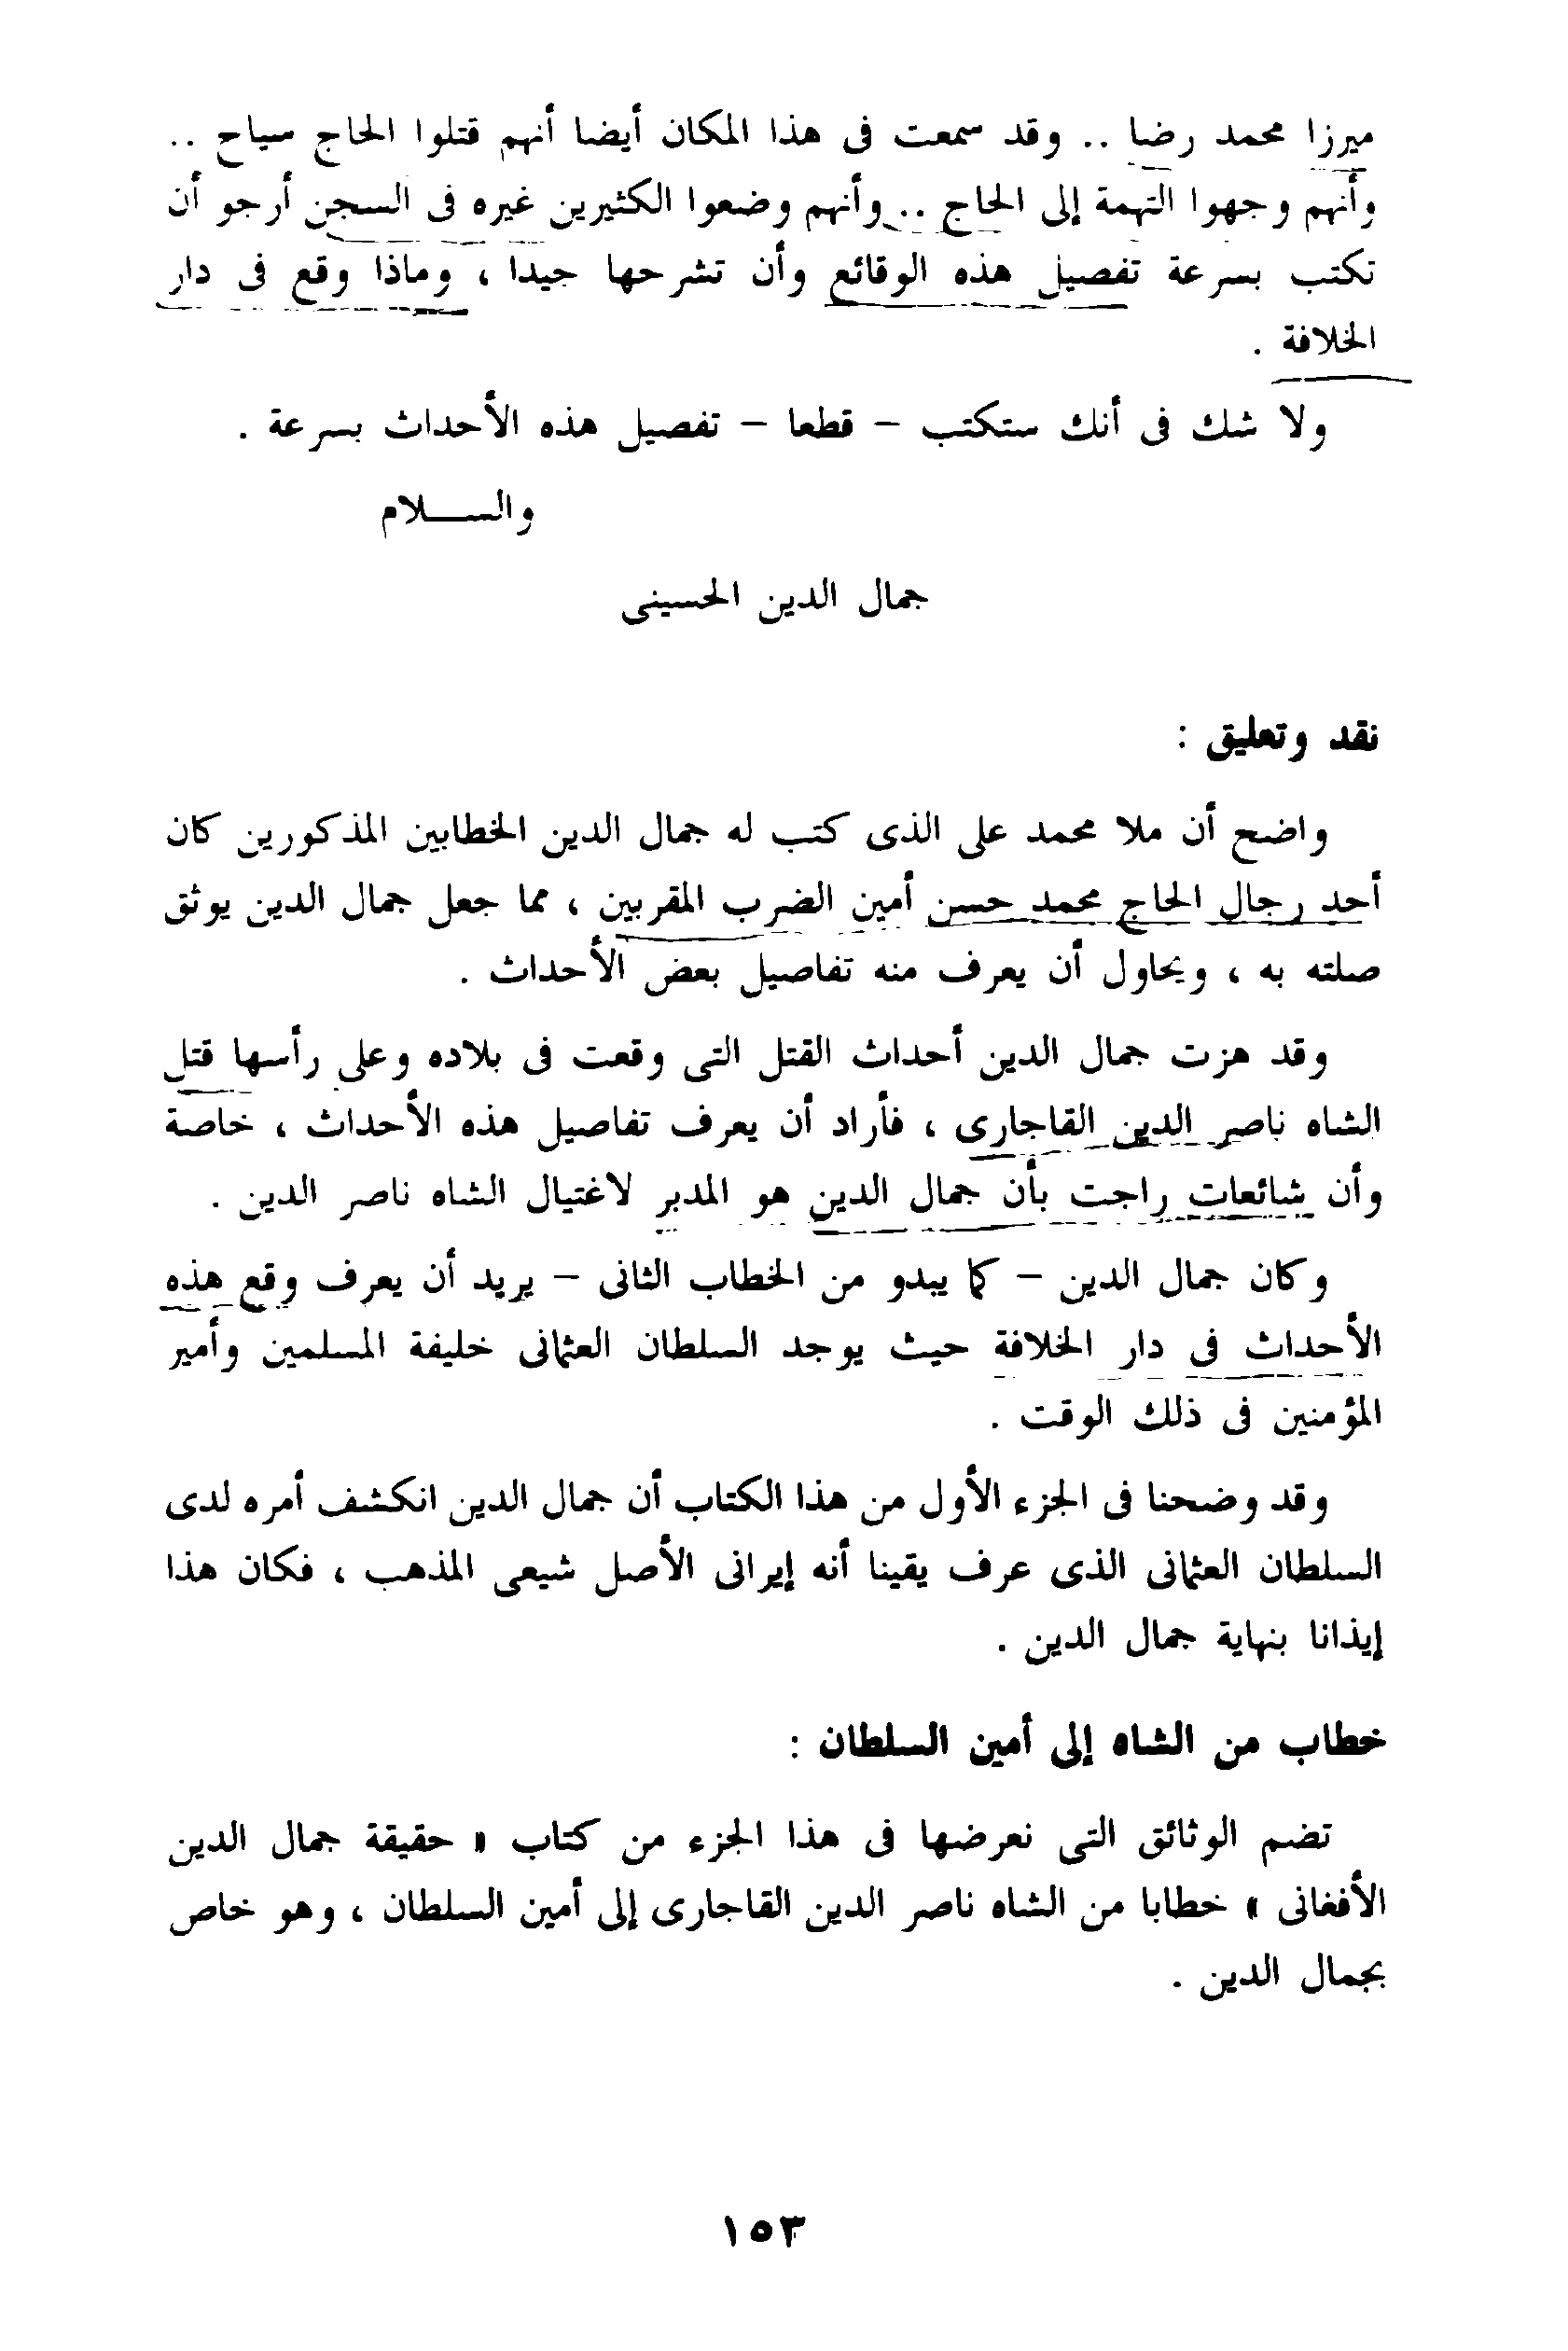 ميرزا محمد رضا .. وقد سمعت فى هذا المكان أيضا أنهم قتلوا الحاج سياح ..
وأنهم وجهوا التهمة إلى الحاج .. وأنهم وضعوا الكثيرين غيره فى السجن أرجو أن
تكتب بسرعة تفصيل هذه الوقائع وأن تشرحها جيدا ، وماذا وقع فى دار
الخلافة .
ولا شك فى أنك ستكتب – قطعا – تفصيل هذه الأحداث بسرعة .
والســـلام
جمال الدين الحسينى
نقد وتعليق :
واضح أن ملا محمد على الذى كتب له جمال الدين الخطابين المذكورين كان
أحد رجال الحاج محمد حسن أمين الضرب المقربين ، مما جعل جمال الدين يوثق
صلته به ، ويحاول أن يعرف منه تفاصيل بعض الأحداث .
وقد هزت جمال الدين أحداث القتل التى وقعت فى بلاده وعلى رأسها قتل
الشاه ناصر الدين القاجارى ، فأراد أن يعرف تفاصيل هذه الأحداث ، خاصة
وأن شائعات راجت بأن جمال الدين هو المدبر لاغتيال الشاه ناصر الدين .
وكان جمال الدين – كما يبدو من الخطاب الثانى – يريد أن يعرف وقع هذه
الأحداث فى دار الخلافة حيث يوجد السلطان العثمانى خليفة المسلمين وأمير
المؤمنين فى ذلك الوقت .
وقد وضحنا فى الجزء الأول من هذا الكتاب أن جمال الدين انكشف أمره لدى
السلطان العثمانى الذى عرف يقينا أنه إيرانى الأصل شيعى المذهب ، فكان هذا
إيذانا بنهاية جمال الدين .
خطاب من الشاه إلى أمين السلطان :
تضم الوثائق التى نعرضها فى هذا الجزء من كتاب « حقيقة جمال الدين
الأفغانى » خطابا من الشاه ناصر الدين القاجارى إلى أمين السلطان ، وهو خاص
بجمال الدين .
١٥٣